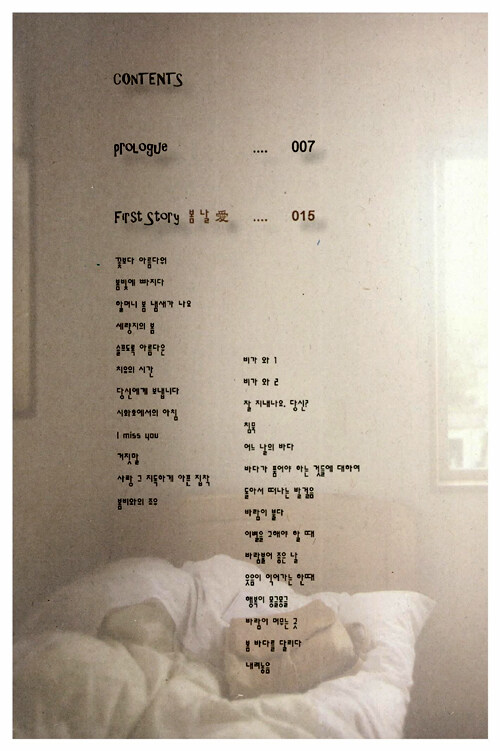 CONTENTS
prologue .... 007
First Story 봄날 愛 .... 015
꽃보다 아름다워
봄빛에 빠지다
할머니 봄 냄새가 나요
세량지의 봄
슬프도록 아름다운
치유의 시간
당신에게 보냅니다
시화호에서의 아침
I miss you
거짓말
사랑 그 지독하게 아픈 집착
봄비와의 조우
비가 와 1
비가 와 2
잘 지내나요, 당신?
침묵
어느 날의 바다
바다가 품어야 하는 것들에 대하여
돌아서 떠나는 발걸음
바람이 불다
이별을 고해야 할 때
바람불어 좋은 날
웃음이 익어가는 한때
행복이 몽글몽글
바람이 머무는 곳
봄 바다를 달리다
내려놓음